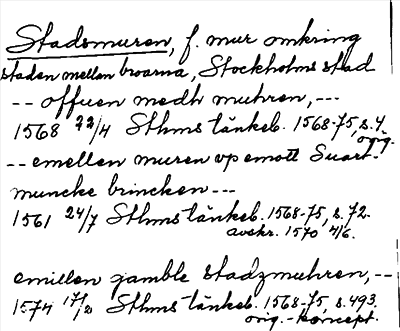 Stadsmuren, f. mur omkring
staden mellan broarna, Stockholms stad
-- offuen medh muhren, ---
1568 22/4 Sthms tänkeb. 1568-75, s. 4.
orig.
-- emellen muren vp emott Suart-
muncke brincken ---
1561 24/7 Sthms tänkeb. 1568-75, s. 72.
avskr. 1570 4/6.
emillen gamble stadzmuhren, --
1574 17/2 Sthms tänkeb. 1568-75, s. 493.
orig.-koncept.